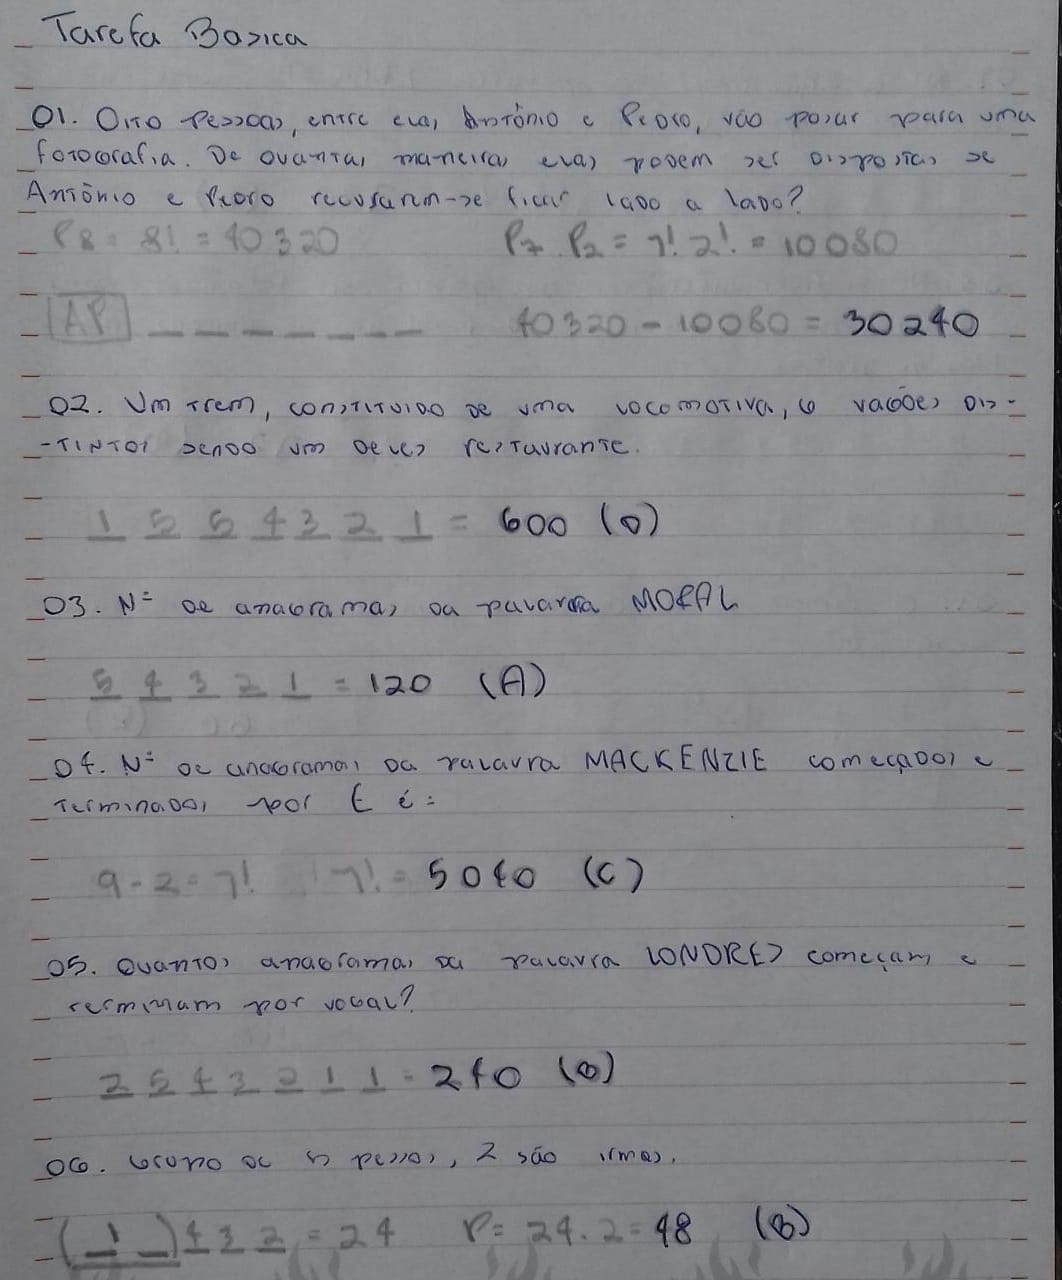 Tarefa Basica
01. Oito pessoas, entre elas Antônio e Pedro, vão posar para uma
fotografia. De quantas maneiras elas podem ser dispostas se
Antônio e Pedro recusarem-se ficar lado a lado?
P8 = 8! = 40320 P7 . P2 = 7! 2! = 10080
AP _ _ _ _ _ _ 40320 - 10080 = 30240
02. Um trem, constituido de uma locomotiva, 6 vagões dis-
-tintos sendo um deles restaurante.
1 5 5 4 3 2 1 = 600 (D)
03. Nº de anagramas da palavra MORAL
5 4 3 2 1 = 120 (A)
04. Nº de anagramas da palavra MACKENZIE começados e
terminados por E é:
9 - 2 = 7! 7! = 5040 (C)
05. Quantos anagramas da palavra LONDRES começam e
terminam por vogal?
2 5 4 3 2 1 1 = 240 (B)
06. Grupo de 5 pessoas, 2 são irmãs.
(1 _) 4 3 2 = 24 P = 24 . 2 = 48 (B)